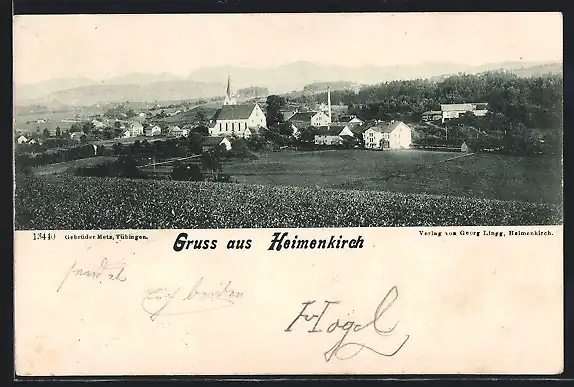 13440 Gebrüder Metz, Tübingen.
Gruss aus Heimenkirch
Verlag von Georg Lingg, Heimenkirch.
sendet
Euch beiden